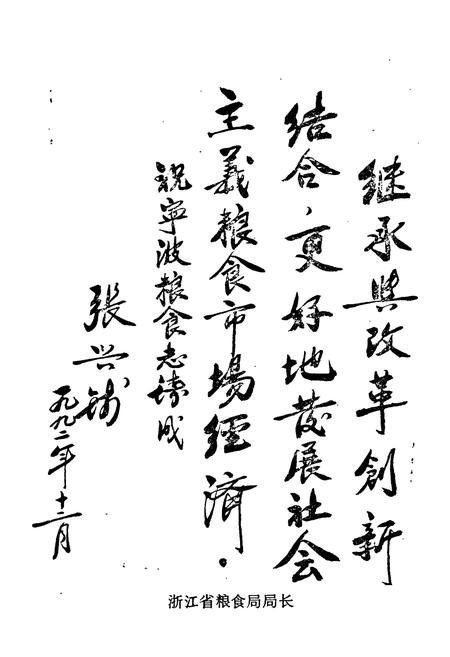 继承与改革創新
结合，更好地发展社会
主義粮食市場經濟。
祝寧波粮食志编成
張兴
一九九二年十二月
浙江省粮食局局长